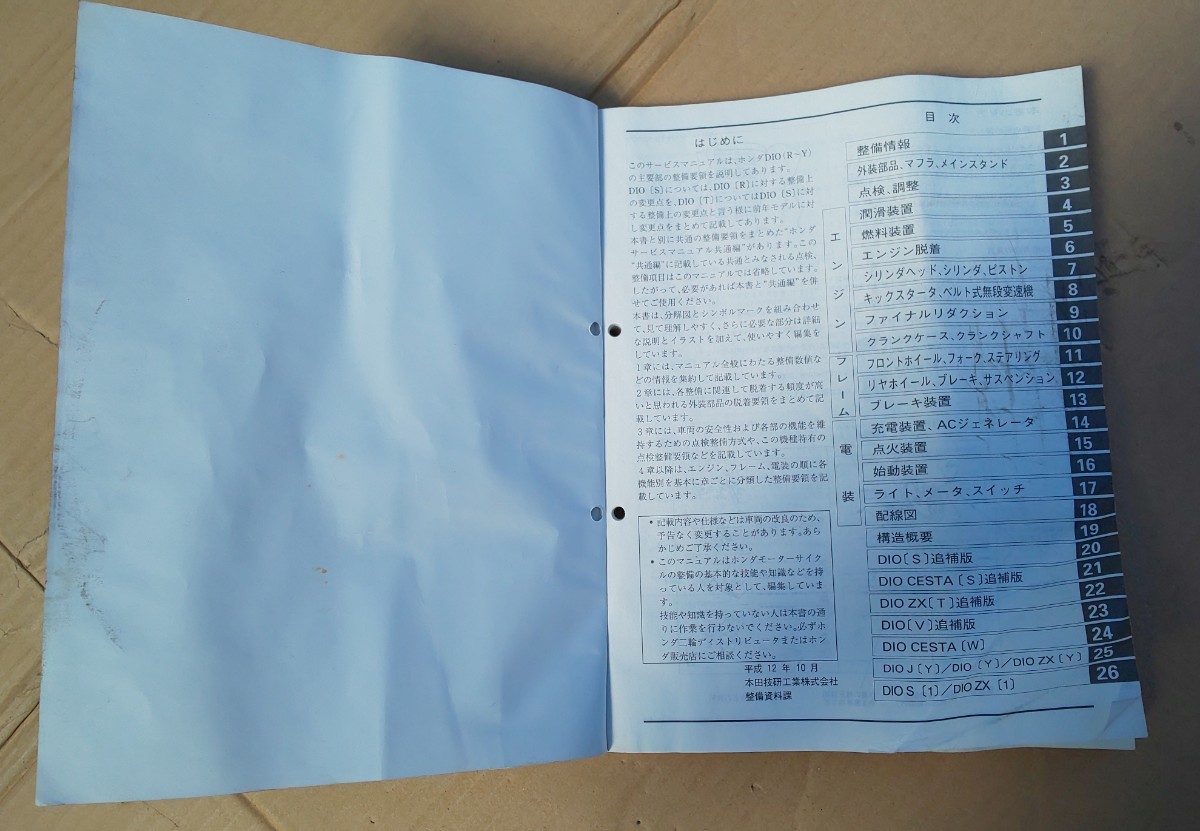 はじめに
このサービスマニュアルは、ホンダDIO(R～Y)
の主要部の整備要領を説明してあります。
DIO〔S〕については、DIO〔R〕に対する整備上
の変更点を、DIO〔T〕についてはDIO〔S〕に対
する整備上の変更点と言う様に前年モデルに対
し変更点をまとめて記載してあります。
本書と別に共通の整備要領をまとめた“ホンダ
サービスマニュアル共通編”があります。この
“共通編”に記載している共通とみなされる点検、
整備項目はこのマニュアルでは省略しています。
したがって、必要があれば本書と“共通編”を併
せてご使用ください。
本書は、分解図とシンボルマークを組み合わせ
て、見て理解しやすく、さらに必要な部分は詳細
な説明とイラストを加えて、使いやすく編集を
しています。
1章には、マニュアル全般にわたる整備数値な
どの情報を集約して記載しています。
2章には、各整備に関連して脱着する頻度が高
いと思われる外装部品の脱着要領をまとめて記
載しています。
3章には、車両の安全性および各部の機能を維
持するための点検整備方式や、この機種特有の
点検整備要領などを記載しています。
4章以降は、エンジン、フレーム、電装の順に各
機能別を基本に章ごとに分類した整備要領を記
載しています。
• 記載内容や仕様などは車両の改良のため、
予告なく変更することがあります。あら
かじめご了承ください。
• このマニュアルはホンダモーターサイク
ルの整備の基本的な技能や知識などを持
っている人を対象として、編集していま
す。
技能や知識を持っていない人は本書の通
りに作業を行わないでください。必ずホ
ンダ二輪ディストリビュータまたはホン
ダ販売店にご相談ください。
平成 12 年 10 月
本田技研工業株式会社
整備資料課
目 次
整備情報 1
外装部品、マフラ、メインスタンド 2
点検、調整 3
エンジン
潤滑装置 4
燃料装置 5
エンジン脱着 6
シリンダヘッド、シリンダ、ピストン 7
キックスタータ、ベルト式無段変速機 8
ファイナルリダクション 9
クランクケース、クランクシャフト 10
フレーム
フロントホイール、フォーク、ステアリング 11
リヤホイール、ブレーキ、サスペンション 12
ブレーキ装置 13
電装
充電装置、ACジェネレータ 14
点火装置 15
始動装置 16
ライト、メータ、スイッチ 17
配線図 18
構造概要 19
DIO〔S〕追補版 20
DIO CESTA〔S〕追補版 21
DIO ZX〔T〕追補版 22
DIO〔V〕追補版 23
DIO CESTA〔W〕 24
DIO J〔Y〕／DIO〔Y〕／DIO ZX〔Y〕 25
DIO S〔1〕／DIO ZX〔1〕 26